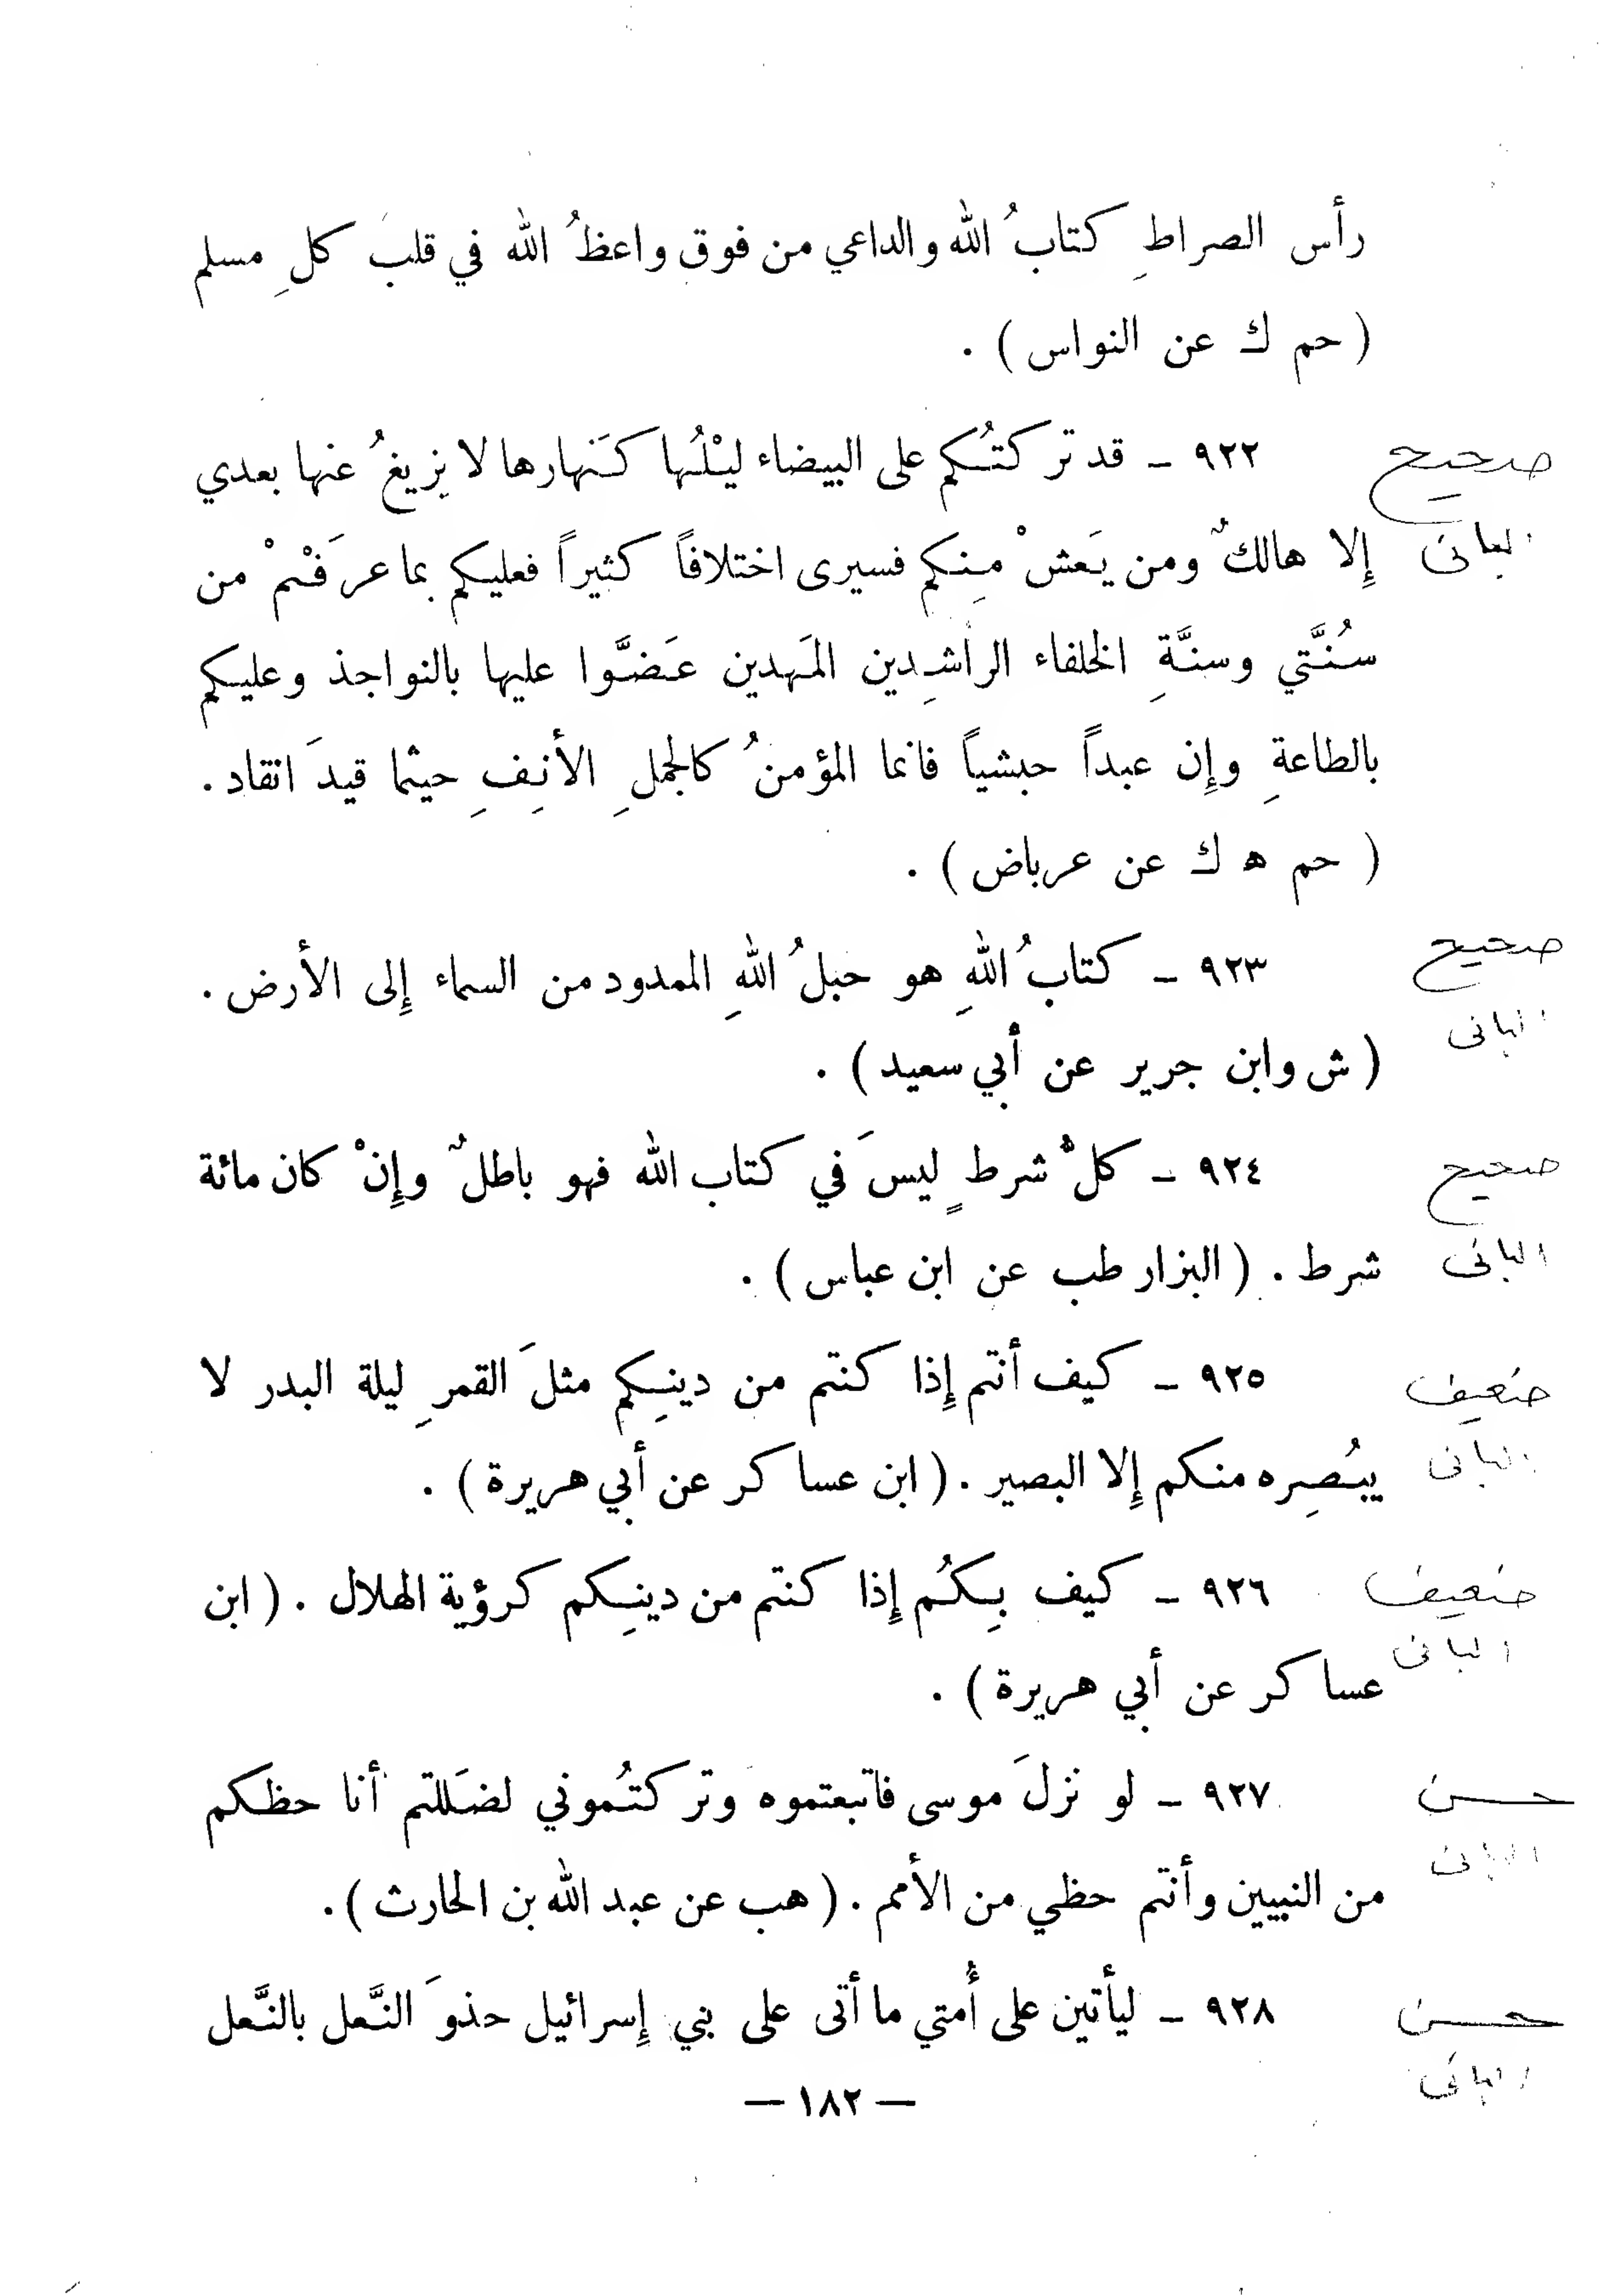 رأس الصراطِ كتابُ الله والداعي من فوق واعظُ الله في قلب كلِ مسلم
( حم ك عن النواس ) .
صحيح
٩٢٢ – قد تركتُكم على البيضاء ليْلُها كَنهارها لا يزيغُ عنها بعدي
البانى
إِلا هالكٌ ومن يَعشْ مِنكم فسيرى اختلافاً كثيراً فعليكم بما عرَفْتمْ من
سُنَّتي وسنَّةِ الخلفاء الراشِدين المَهدين عَضَّوا عليها بالنواجذ وعليكم
بالطاعةِ وإِن عبداً حبشياً فانما المؤمنُ كالجملِ الأنِفِ حيثما قيدَ انقاد .
( حم ه ك عن عرباض ) .
صحيح
٩٢٣ – كتابُ اللهِ هو حبلُ اللهِ الممدود من السماء إِلى الأرض .
البانى
( ش وابن جرير عن أبي سعيد ) .
صحيح
٩٢٤ – كلُّ شرطٍ ليسَ في كتاب الله فهو باطلٌ وإِنْ كان مائة
البانى
شرط . ( البزار طب عن ابن عباس ) .
ضعيف
٩٢٥ – كيف أنتم إِذا كنتم من دينِكم مثلَ القمرِ ليلة البدر لا
البانى
يبُصِره منكم إِلا البصير . ( ابن عساكر عن أبي هريرة ) .
ضعيف
٩٢٦ – كيف بِكُم إِذا كنتم من دينِكم كرؤية الهلال . ( ابن
البانى
عساكر عن أبي هريرة ) .
حسن
٩٢٧ – لو نزلَ موسى فاتبعتموه وتركتُموني لضَللتم أنا حظكم
البانى
من النبيين وأنتم حظي من الأمم . ( هب عن عبد الله بن الحارث ) .
حسن
٩٢٨ – ليأتين على أُمتي ما أتى على بني إِسرائيل حذوَ النَّعل بالنَّعل
البانى
— ١٨٢ —